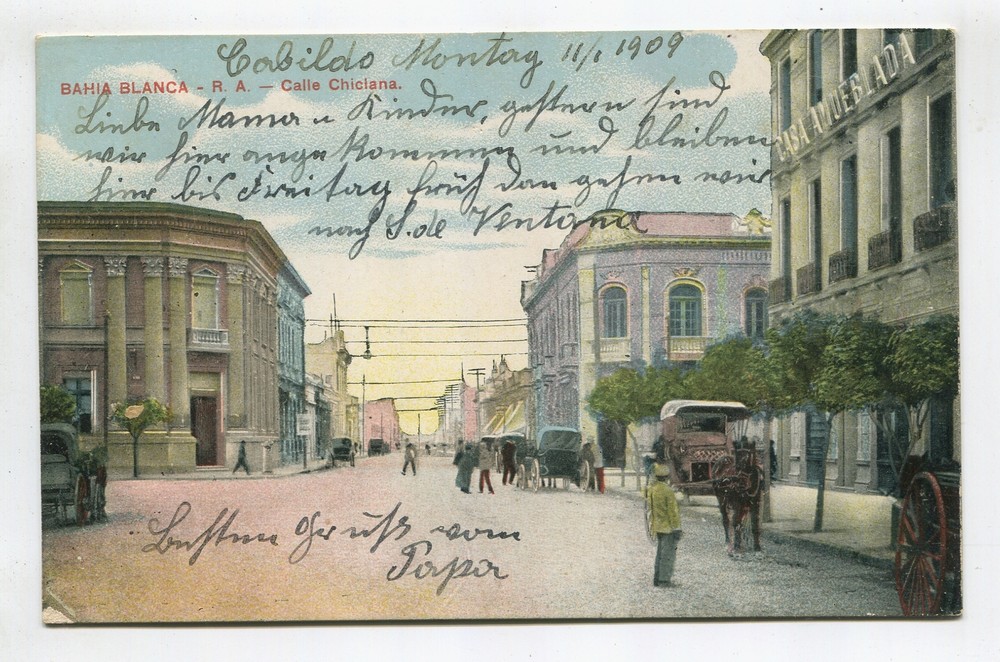 Cabildo Montag 11/1 1909
BAHIA BLANCA - R. A. — Calle Chiclana.
Liebe Mama u Kinder, gestern sind
wir hier angekommen und bleiben
hier bis Freitag früh dan gehen wir
nach S. de Ventana
CASA AMUEBLADA
Besten Gruß vom
Papa